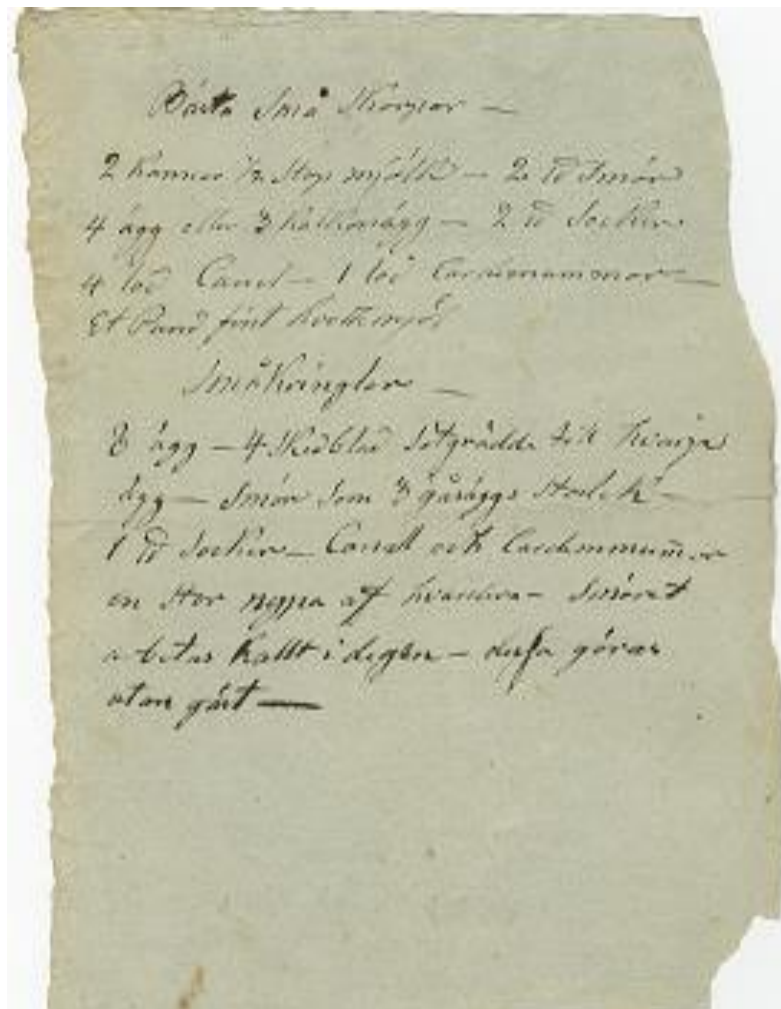 Bästa Små Skorpor —
2 Kannor 1/2 Stop mjölk — 2 ℔ Smör
4 ägg eller 3 Kalkonägg — 2 ℔ Socker
4 lod Canel — 1 lod Cardemummor —
Et Pund fint hvetemjöl
Småkringlor —
8 ägg — 4 Skedblad Sötgrädde till hvarje
ägg — Smör Som 3 gåsäggs Storlek —
1 ℔ Socker — Canell och Cardemummor
en Stor nypa af hvardera — Smöret
arbetas Kallt i degen — desa göras
utan gäst —